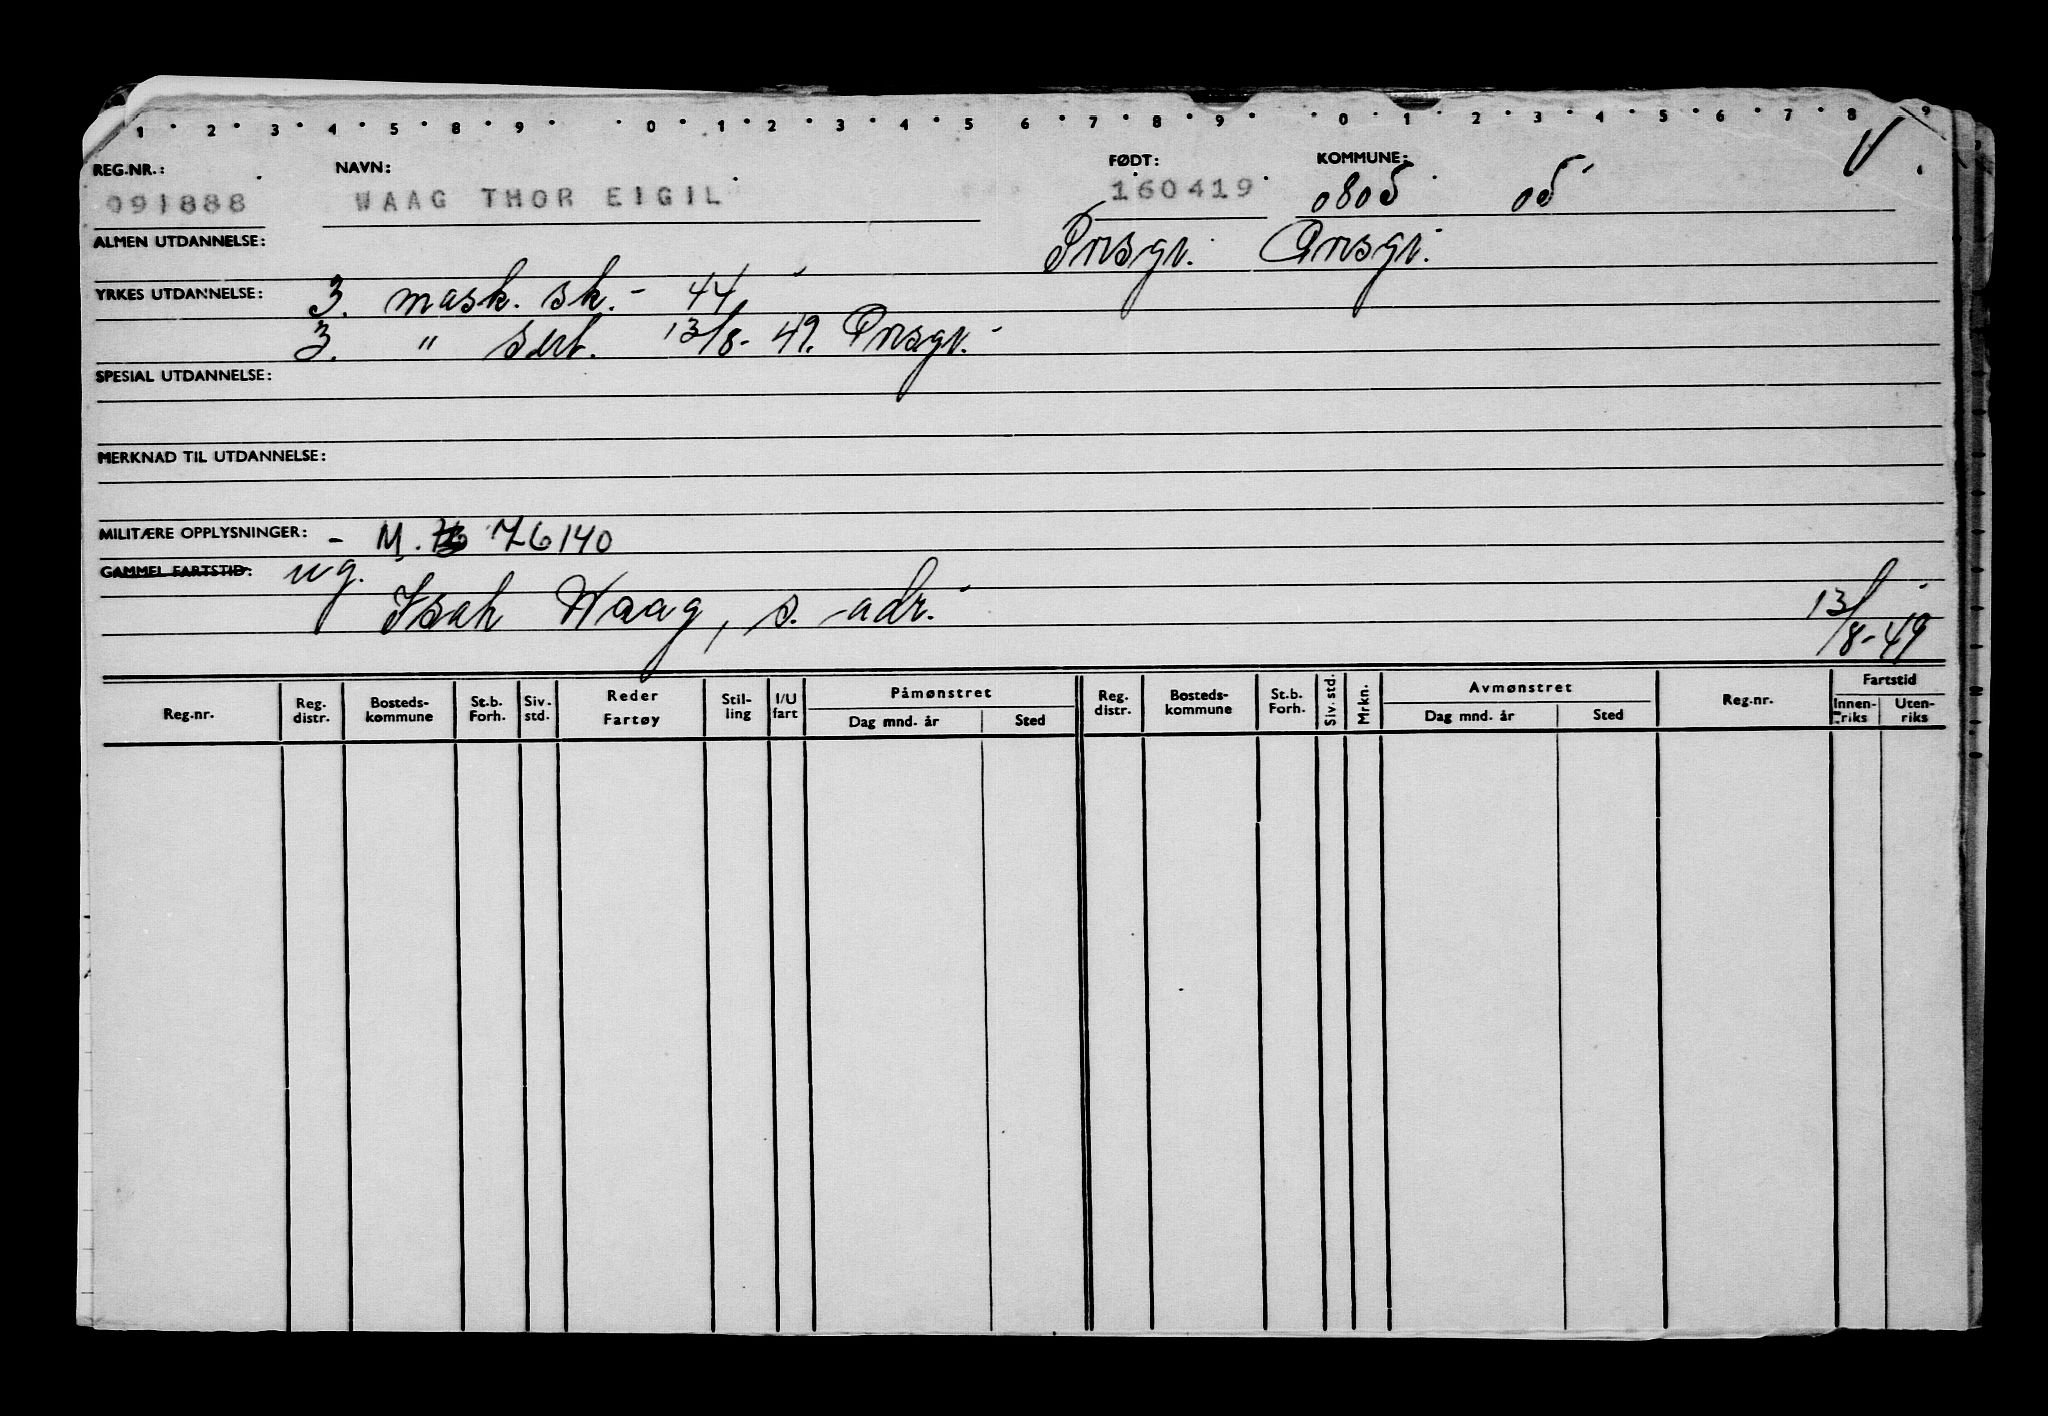 1 2 3 4 5 8 9 0 1 2 3 4 5 6 7 8 9 0 1 2 3 4 5 6 7 8 9
REG.NR.: NAVN: FØDT: KOMMUNE:
091888 WAAG THOR EIGIL 160419 0805 05
ALMEN UTDANNELSE: Prsgr. Prsgr.
YRKES UTDANNELSE: 3. mask. sk. - 44
3. " sert. 13/8- 49. Prsgr.
SPESIAL UTDANNELSE:
MERKNAD TIL UTDANNELSE:
MILITÆRE OPPLYSNINGER: - M. 76140
GAMMEL FARTSTID: ug.
Isak Waag, s. adr. 13/8-49
Reg.nr. Reg. distr. Bosteds-kommune St.b. Forh. Siv. std. Reder Fartøy Stil-ling I/U fart Påmønstret Dag mnd. år Sted Reg. distr. Bosteds-kommune St.b. Forh. Siv. std. Mrkn. Avmønstret Dag mnd. år Sted Reg.nr. Fartstid Innen-riks Uten-riks